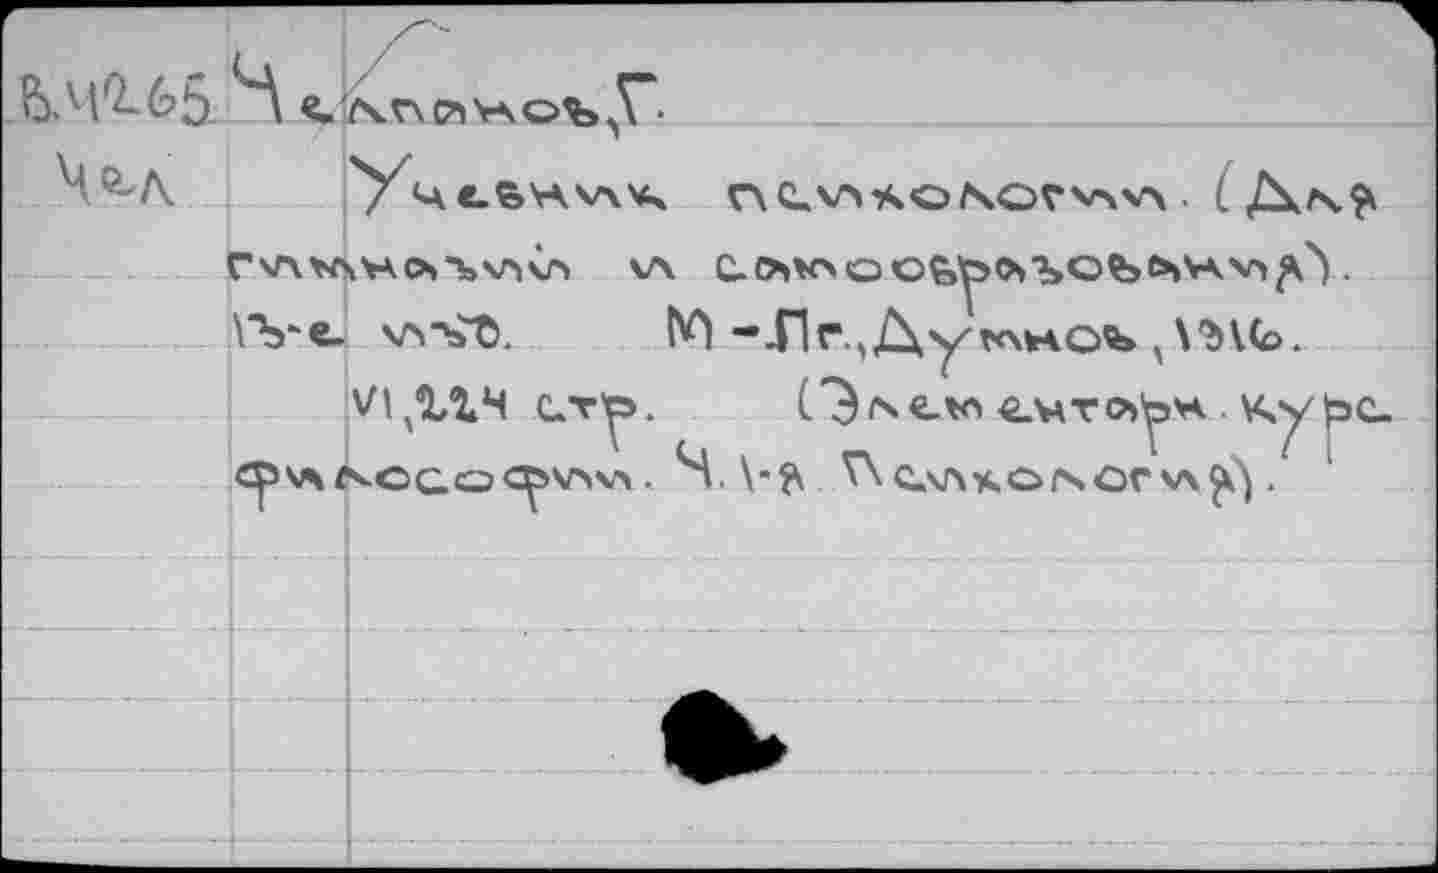 В.4265 Челпанов, Г.
Чел Учебник психологии. (Для
гимназий и самообразования).
13-е изд. М-Пг., Думнов, 1916.
VI, 224 стр. (Элементарн. курс
философии. Ч. 1-я Психология).